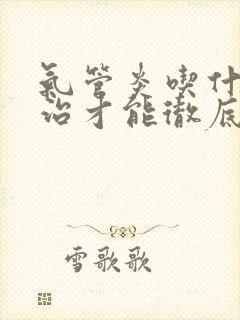 氣管炎喫什
治才能徹底
雪歌歌